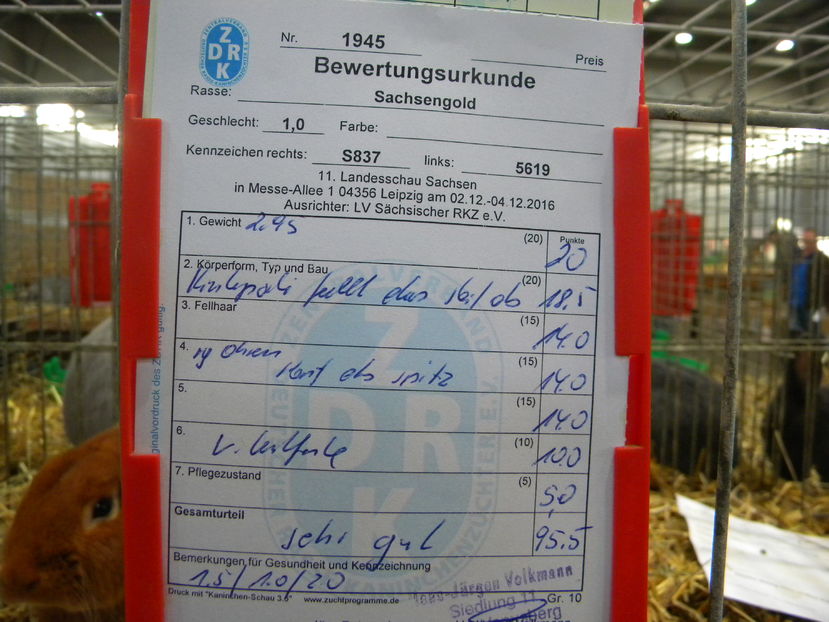 ZDRK
Nr. 1945 Preis
Bewertungsurkunde
Rasse: Sachsengold
Geschlecht: 1,0 Farbe:
Kennzeichen rechts: S837 links: 5619
11. Landesschau Sachsen
in Messe-Allee 1 04356 Leipzig am 02.12.-04.12.2016
Ausrichter: LV Sächsischer RKZ e.V.
1. Gewicht 2.95 (20) Punkte 20
2. Körperform, Typ und Bau (20)
fällt ab 18,5
3. Fellhaar (15) 14.0
4. (15)
Ohren spitz 14.0
5. (15) 14.0
6. (10) 10.0
7. Pflegezustand (5) 5,0
Gesamturteil
sehr gut 95,5
Bemerkungen für Gesundheit und Kennzeichnung
1.5/1.0/20
Hans-Jürgen Volkmann
Druck mit "Kaninchen-Schau 3.6" www.zuchtprogramme.de Siedlung 11 Gr. 10